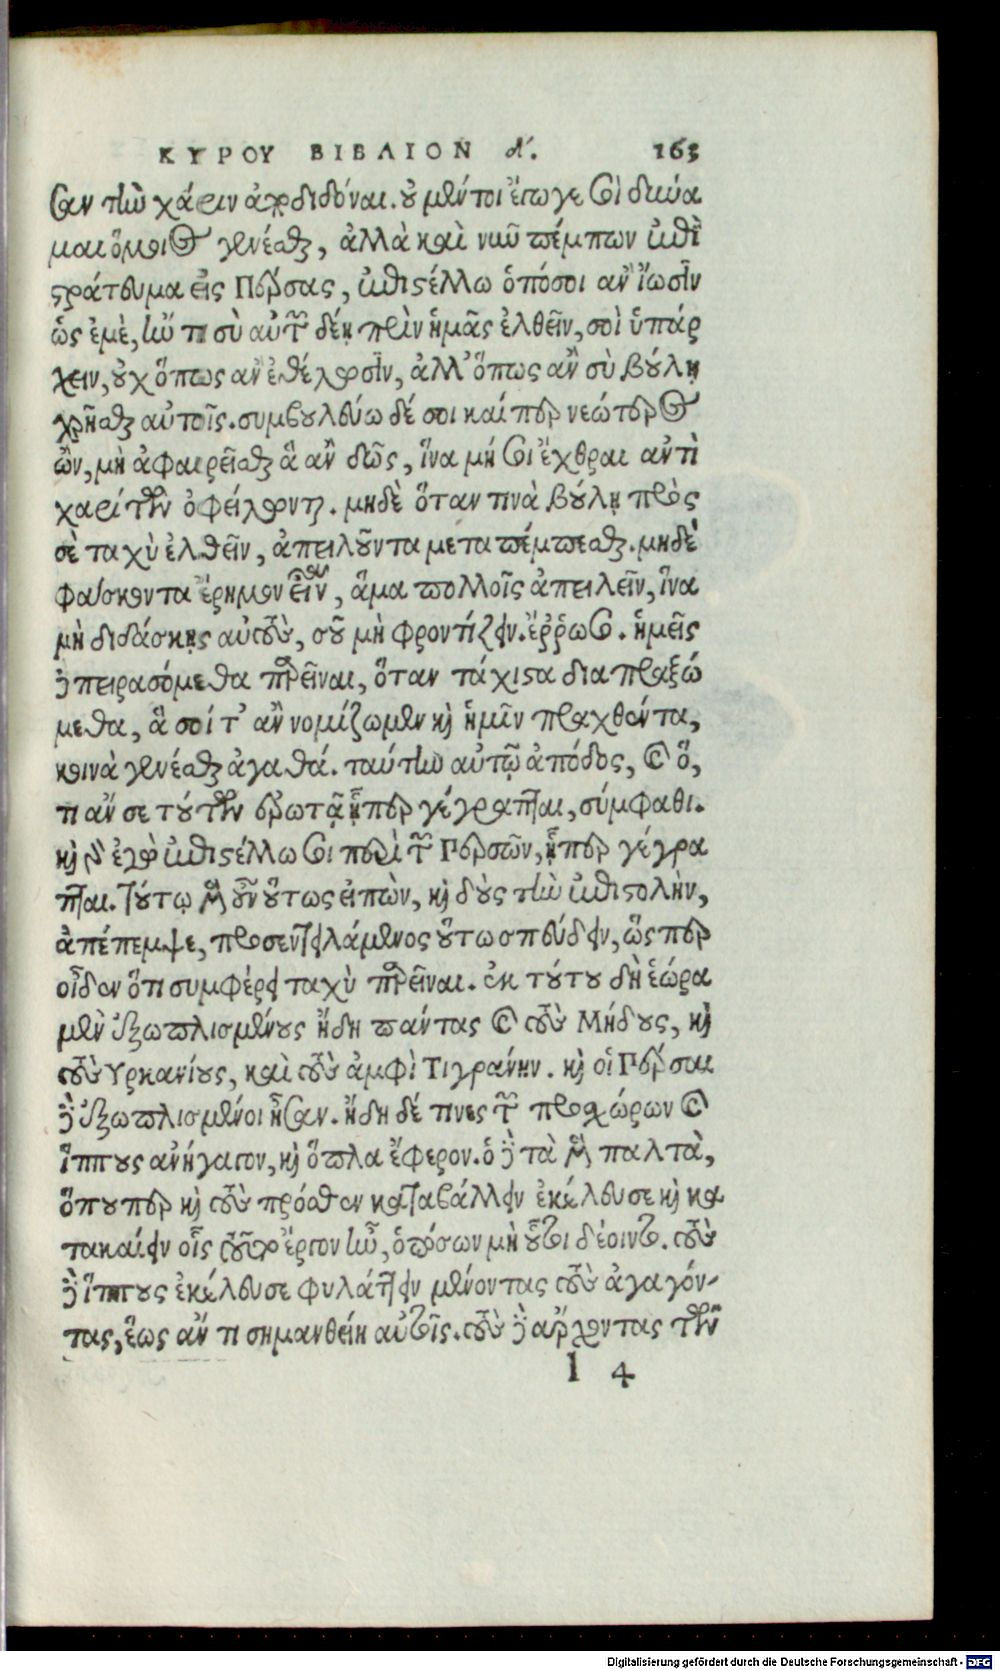 ΚΥΡΟΥ ΒΙΒΛΙΟΝ δ'. 163
σαν τὴν χάριν ἀποδιδόναι. οὐ μέντοι ἔγωγε σοὶ δυνά
μαι ὅμοιος γενέσθαι, ἀλλὰ καὶ νῦν πέμπων ἐπὶ
στράτευμα εἰς Πέρσας, ἐπιστέλλω ὁπόσοι ἂν ἴωσιν
ὡς ἐμὲ, ἤν τι σὺ αὐτῶν δέῃ πρὶν ἡμᾶς ἐλθεῖν, σοὶ ὑπάρ
χειν, οὐχ ὅπως ἂν ἐθέλωσιν, ἀλλ' ὅπως ἂν σὺ βούλῃ
χρῆσθαι αὐτοῖς. συμβουλεύω δέ σοι καίπερ νεώτερος
ὢν, μὴ ἀφαιρεῖσθαι ἃ ἂν δῶς, ἵνα μή σοι ἔχθραι ἀντὶ
χαρίτων ὀφείλωνται. μηδὲ ὅταν τινὰ βούλῃ πρὸς
σὲ ταχὺ ἐλθεῖν, ἀπειλοῦντα μεταπέμπεσθαι. μηδὲ
φάσκοντα ἔρημον εἶναι, ἅμα πολλοῖς ἀπειλεῖν, ἵνα
μὴ διδάσκῃς αὐτοὺς, σοῦ μὴ φροντίζειν. ἔῤῥωσο. ἡμεῖς
δὲ πειρασόμεθα παρεῖναι, ὅταν τάχιστα διαπραξώ
μεθα, ἃ σοί τ' ἂν νομίζωμεν καὶ ἡμῖν πραχθέντα,
κοινὰ γενέσθαι ἀγαθά. ταύτην αὐτῷ ἀπόδος, καὶ ὅ,
τι ἄν σε τούτων ἐρωτᾷ ᾗπερ γέγραπται, σύμφαθι.
καὶ γὰρ ἐγὼ ἐπιστέλλω σοι περὶ τῶν Περσῶν, ᾗπερ γέγρα
πται. Τούτῳ μὲν οὖν οὕτως εἰπὼν, καὶ δοὺς τὴν ἐπιστολὴν,
ἀπέπεμψε, προσεντειλάμενος οὕτω σπεύδειν, ὥσπερ
οἶδεν ὅτι συμφέρει ταχὺ παρεῖναι. ἐκ τούτου δὴ ἑώρα
μὲν ἐξωπλισμένους ἤδη πάντας καὶ τοὺς Μήδους, καὶ
τοὺς Υρκανίους, καὶ τοὺς ἀμφὶ Τιγράνην. καὶ οἱ Πέρσαι
δὲ ἐξωπλισμένοι ἦσαν. ἤδη δέ τινες τῶν προσχώρων καὶ
ἵππους ἀνήγαγον, καὶ ὅπλα ἔφερον. ὁ δὲ τὰ μὲν παλτὰ,
ὅπουπερ καὶ τοὺς πρόσθεν καταβάλλειν ἐκέλευσε καὶ κα
τακαίειν οἷς τοῦτο ἔργον ἦν, ὁπόσων μὴ αὐτοὶ δέοιντο. τοὺς
δὲ ἵππους ἐκέλευσε φυλάττειν μένοντας τοὺς ἀγαγόν-
τας, ἕως ἄν τι σημανθείη αὐτοῖς. τοὺς δὲ ἄρχοντας τῶν
l 4
Digitalisierung gefördert durch die Deutsche Forschungsgemeinschaft - DFG